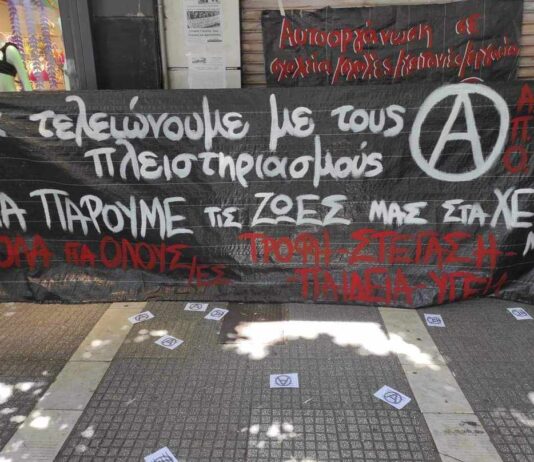 Αυτοοργάνωση σε
σχολεία/σχολές/γειτονιές/εργασία
τελειώνουμε με τους
πλειστηριασμούς
Α
ΑΠΟ
ΠΑΡΟΥΜΕ τις ΖΩΕΣ μας στα ΧΕ
ΟΛΑ ΓΙΑ ΟΛΟΥΣ/ΕΣ
ΤΡΟΦΗ-ΣΤΕΓΑΣΗ-
-ΠΑΙΔΕΙΑ-ΥΓΕΙ